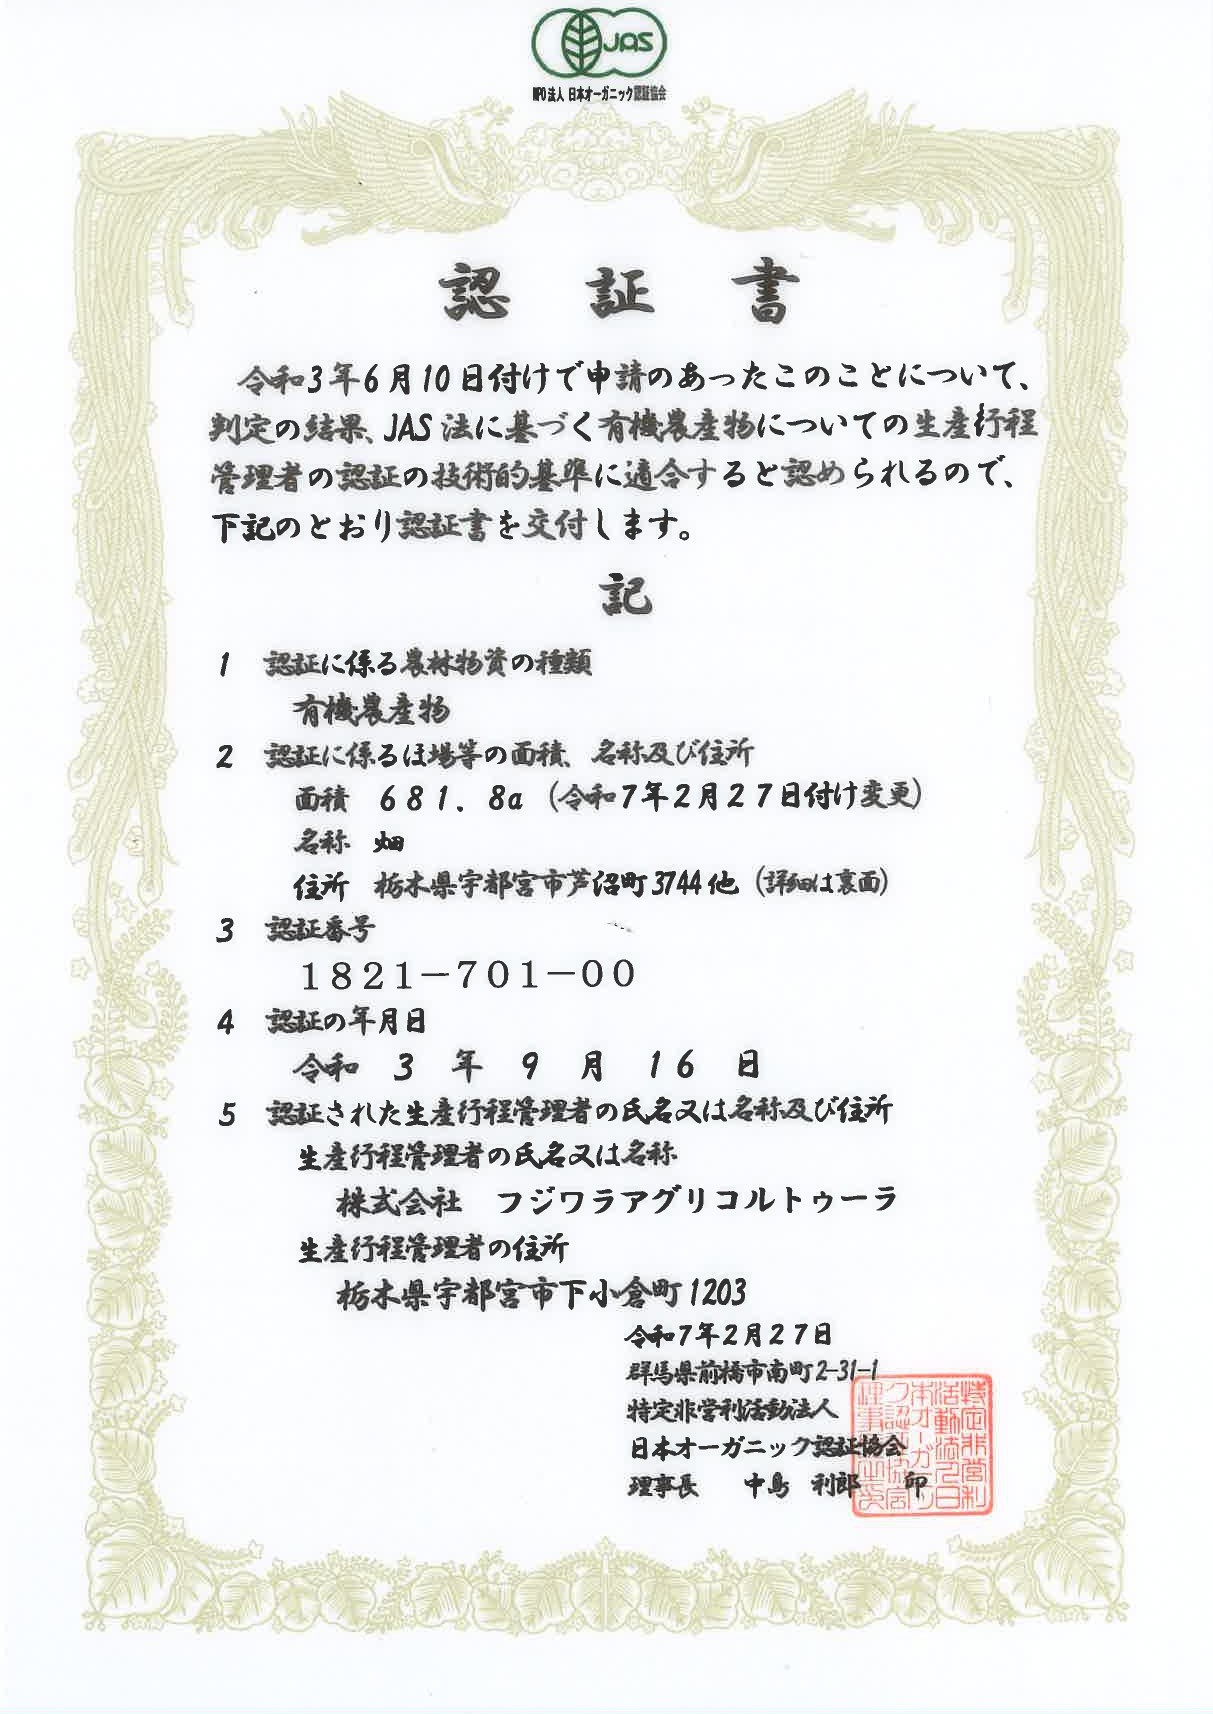 JAS
NPO法人 日本オーガニック認証協会
認 証 書
令和3年6月10日付けで申請のあったこのことについて、
判定の結果、JAS法に基づく有機農産物についての生産行程
管理者の認証の技術的基準に適合すると認められるので、
下記のとおり認証書を交付します。
記
1 認証に係る農林物資の種類
有機農産物
2 認証に係るほ場等の面積、名称及び住所
面積 681.8a (令和7年2月27日付け変更)
名称 畑
住所 栃木県宇都宮市芦沼町3744他 (詳細は裏面)
3 認証番号
1821-701-00
4 認証の年月日
令和 3 年 9 月 16 日
5 認証された生産行程管理者の氏名又は名称及び住所
生産行程管理者の氏名又は名称
株式会社 フジワラアグリコルトゥーラ
生産行程管理者の住所
栃木県宇都宮市下小倉町1203
令和7年2月27日
群馬県前橋市南町2-31-1
特定非営利活動法人
日本オーガニック認証協会
理事長 中島 利郎 印
特定非営利
活動法人日
本オーガニッ
ク認証協会
理事長之印